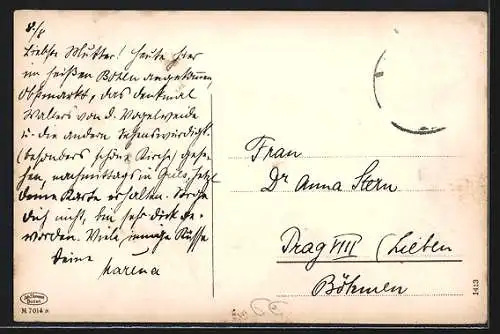 8./8
Liebste Mutter! Heute hier
im heißen Bozen angekommen,
Obstmarkt, das Denkmal
Walters von d. Vogelweide
u. die andern Sehenswürdigk.
(besonders schöne Kirche) gese-
hen, nachmittags in Gries, jetzt
deine Karte erhalten. Sorge
dich nicht, bin sehr dick ge-
worden. Viele innige Küsse
Deine
Frau
Dr Anna Stern
Prag VIII (Lieben
Böhmen
N 7014 n
1413